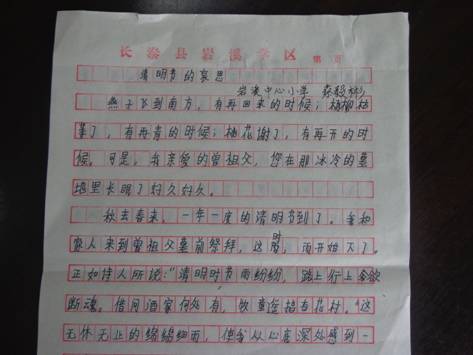 长泰县岩溪学区 第 页
清明节的哀思
岩溪中心小学 森 彬
燕子飞到南方，有再回来的时候；杨柳枯
萎了，有再青的时候；桃花谢了，有再开的时
候。可是，我亲爱的曾祖父，您在那冰冷的墓
地里长眠了好久好久。
秋去春来，一年一度的清明节到了。我和
家人来到曾祖父墓前祭拜，这时，雨开始下了。
正如诗人所说："清明时节雨纷纷，路上行人欲
断魂。借问酒家何处有，牧童遥指杏花村。"这
无休无止的绵绵细雨，使我从心底深处感到一